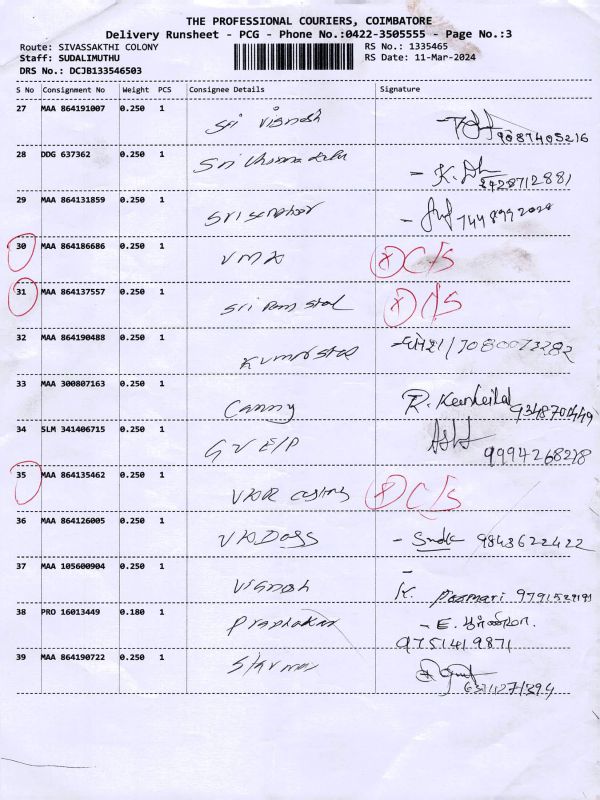 THE PROFESSIONAL COURIERS, COIMBATORE
Delivery Runsheet - PCG - Phone No.:0422-3505555 - Page No.:3
Route: SIVASSAKTHI COLONY RS No.: 1335465
Staff: SUDALIMUTHU RS Date: 11-Mar-2024
DRS No.: DCJB133546503
S No Consignment No Weight PCS Consignee Details Signature
27 MAA 864191007 0.250 1 Sri Vignesh
9087405216
28 DDG 637362 0.250 1 Sri
- K.
29 MAA 864131859 0.250 1
30 MAA 864186686 0.250 1 VMX C/S
31 MAA 864137557 0.250 1 Sri Ram Steel C/S
32 MAA 864190488 0.250 1 7080073282
33 MAA 300807163 0.250 1 Canny R.
9348701449
34 SLM 341406715 0.250 1 GV E/P
9994268218
35 MAA 864135462 0.250 1 C/S
36 MAA 864126005 0.250 1 VKDoss - 9843622422
37 MAA 105600904 0.250 1 Vignesh K.
38 PRO 16013449 0.180 1 Praphakar - E.
9751419871
39 MAA 864190722 0.250 1